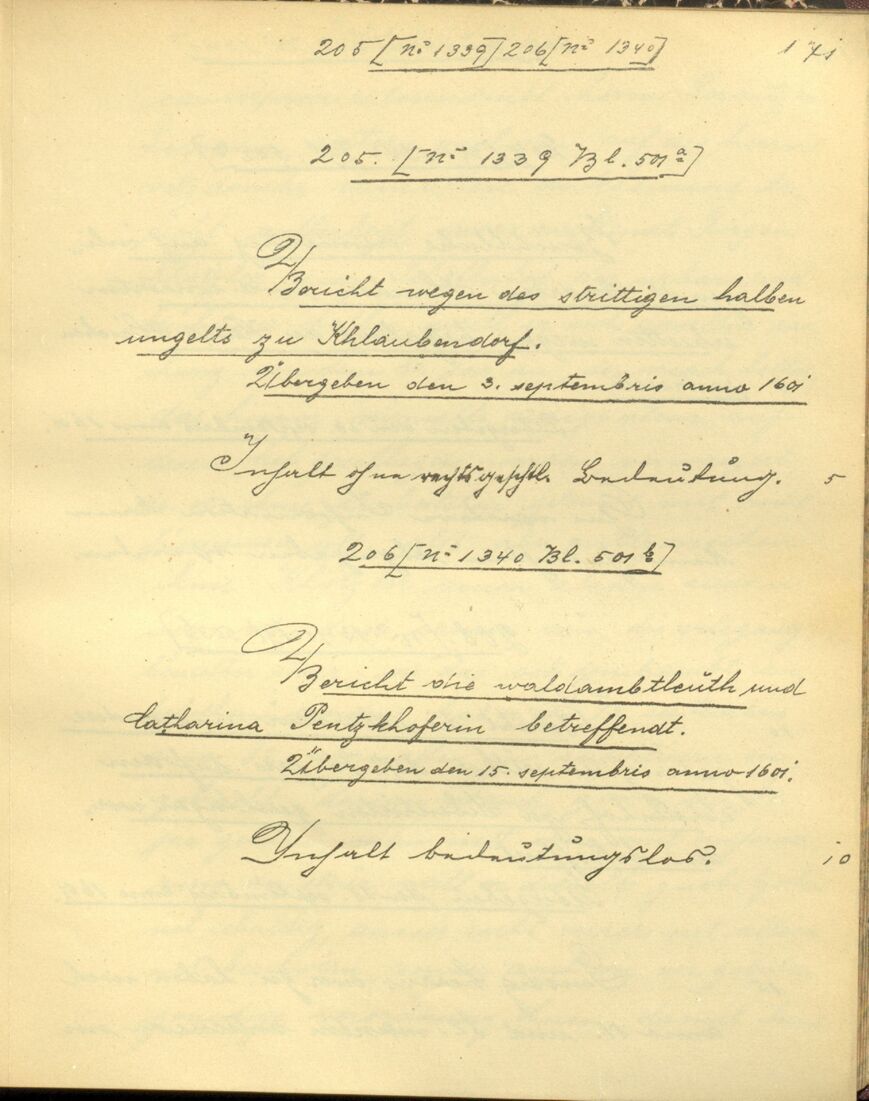 205 [Nº 1339] 206 [Nº 1340] 171
205. [Nº 1339 Bl. 501ª]
Bericht wegen des strittigen halben
ungelts zu Khlaubendorf.
Übergeben den 3. septembris anno 1601
Inhalt ohne rechtsgeschtl. Bedeutung. 5
206 [Nº 1340 Bl. 501 b]
Bericht die waldambtleuth und
Catharina Pentzkhoferin betreffendt.
Übergeben den 15. septembris anno 1601.
Inhalt bedeutungslos. 10